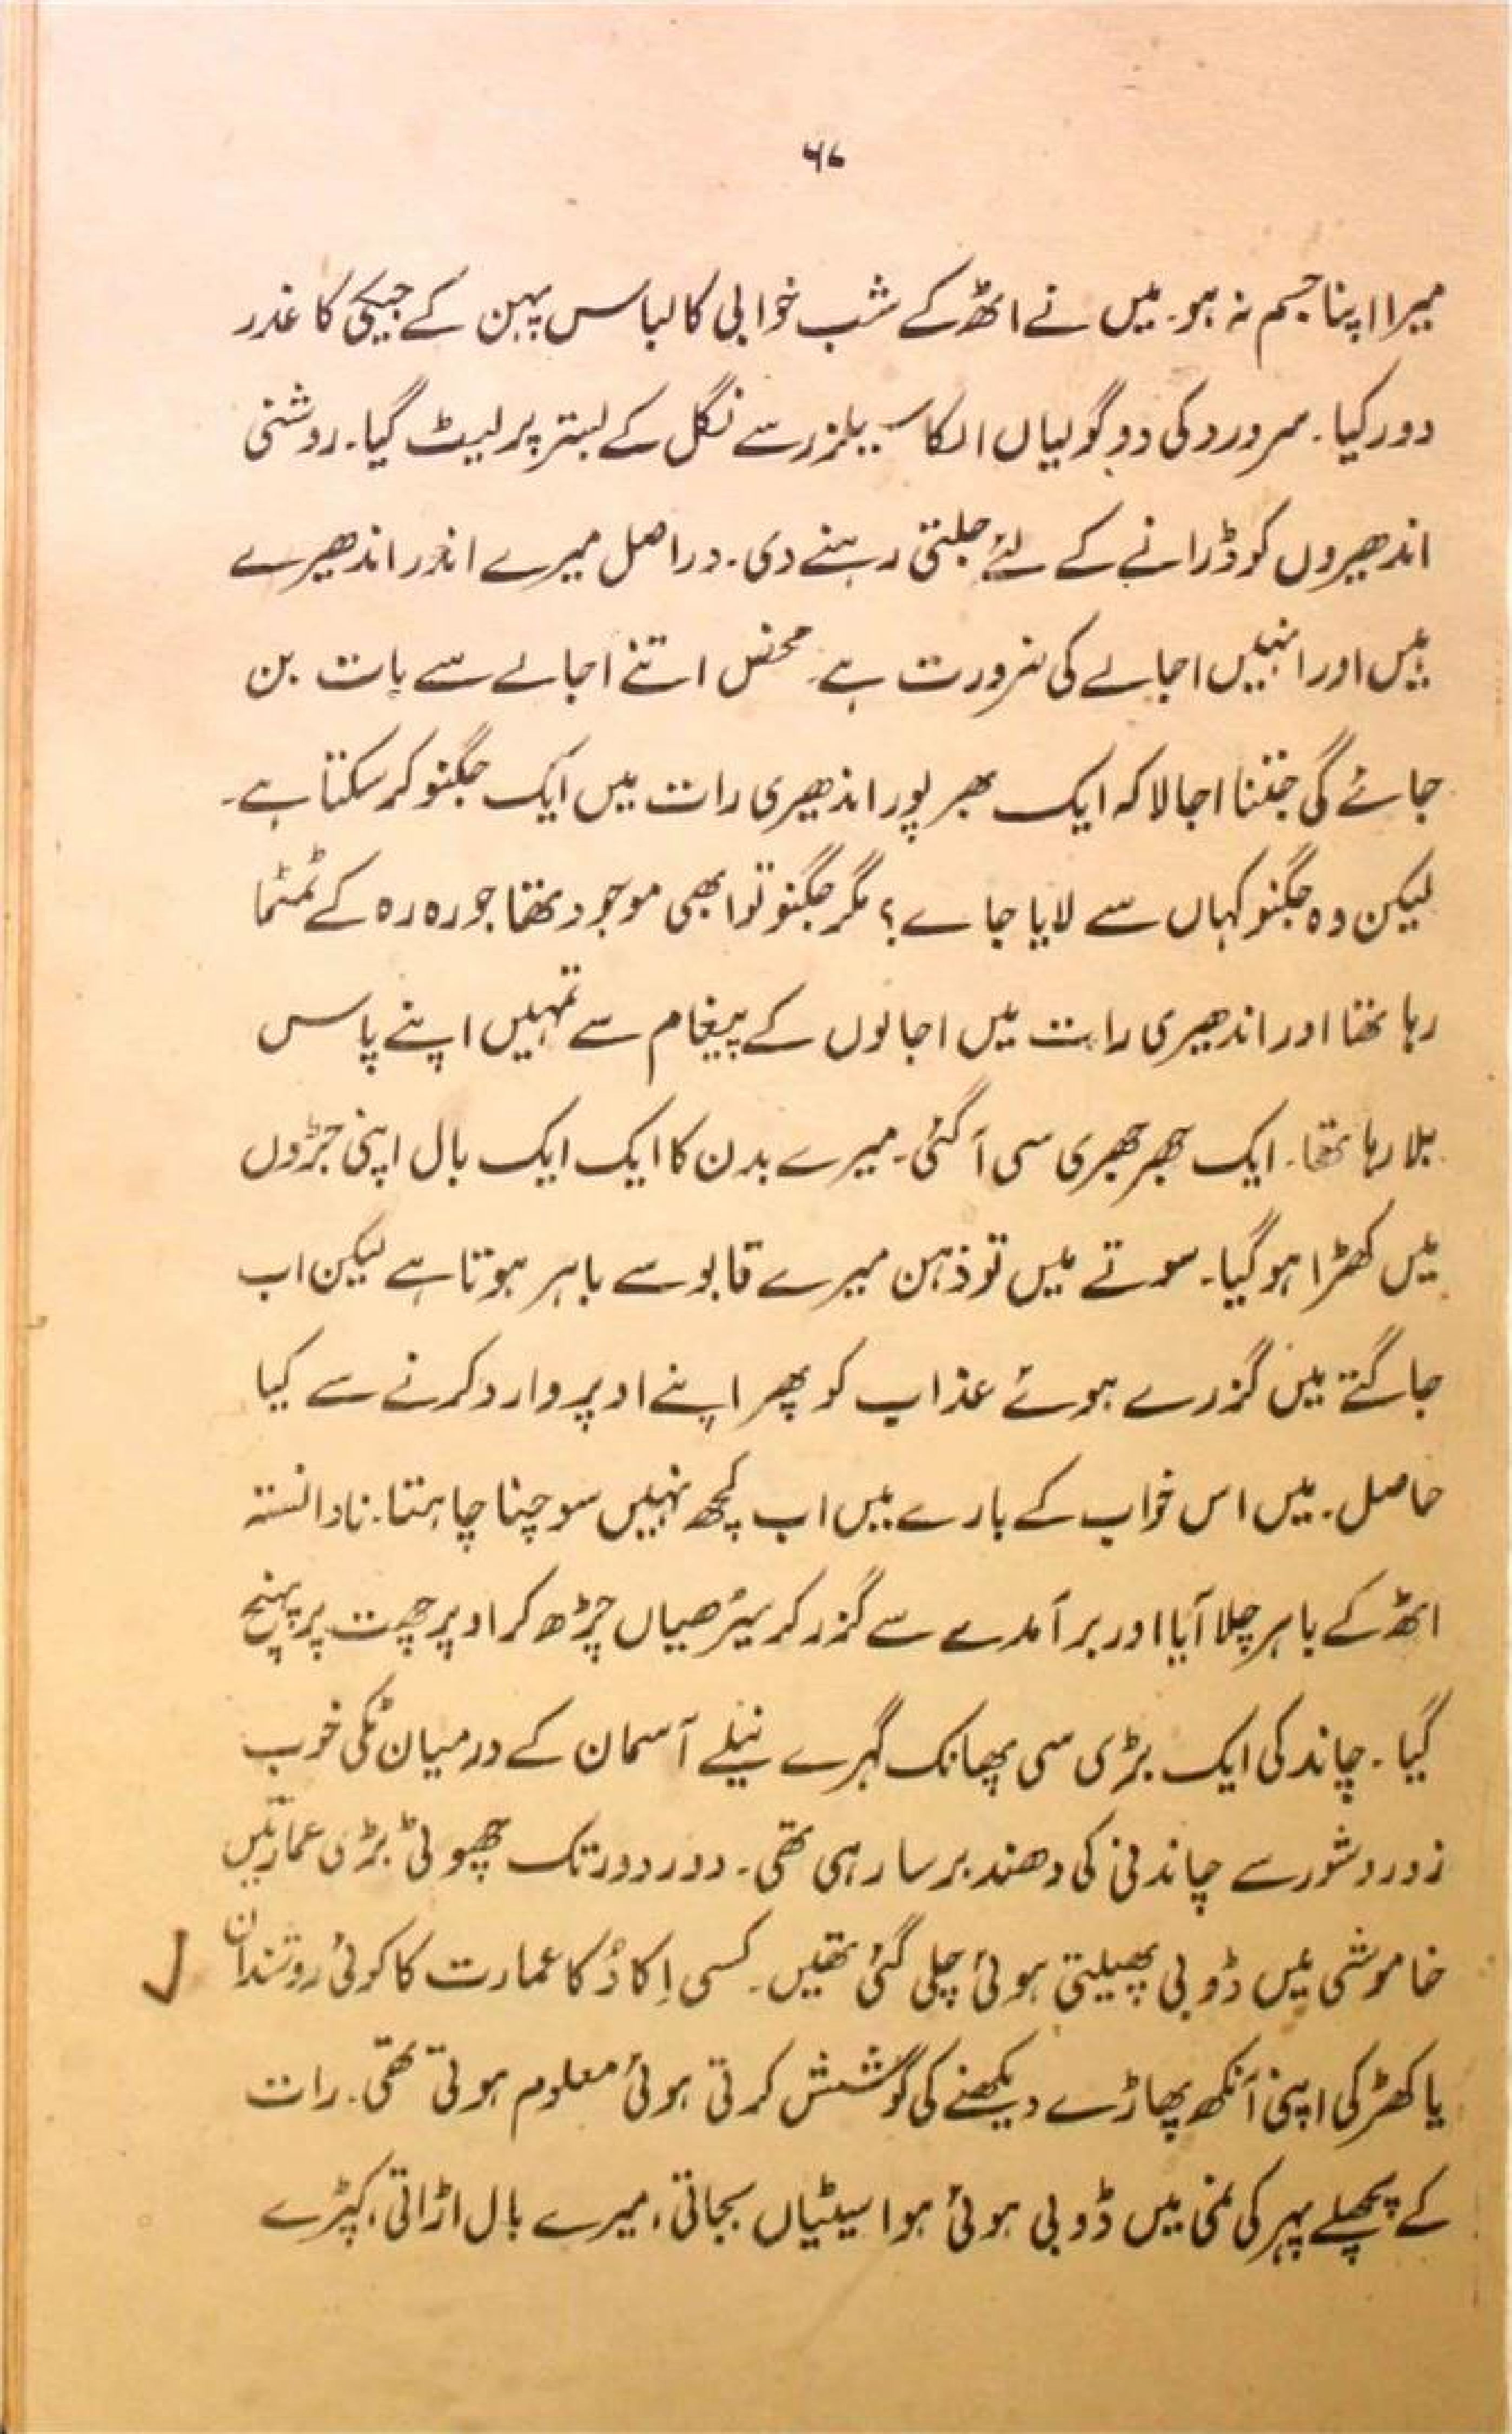 ۶۷
میرا اپنا جسم نہ ہو۔ میں نے اٹھ کے شب خوابی کا لباس پہن کے جیکی کا غدر
دور کیا۔ سر درد کی دو گولیاں الکا سیلزر سے نگل کے بستر پر لیٹ گیا۔ روشنی
اندھیروں کو ڈرانے کے لئے جلتی رہنے دی۔ دراصل میرے اندر اندھیرے
ہیں اور انہیں اجالے کی ضرورت ہے۔ محض اتنے اجالے سے بات بن
جائے گی جتنا اجالا کہ ایک بھرپور اندھیری رات میں ایک جگنو کر سکتا ہے۔
لیکن وہ جگنو کہاں سے لایا جاے؟ مگر جگنو تو ابھی موجود تھا جو رہ رہ کے ٹمٹما
رہا تھا اور اندھیری رات میں اجالوں کے پیغام سے تمہیں اپنے پاس
بلا رہا تھا۔ ایک جھرجھری سی آ گئی۔ میرے بدن کا ایک ایک بال اپنی جڑوں
میں کھڑا ہو گیا۔ سوتے میں تو ذہن میرے قابو سے باہر ہوتا ہے لیکن اب
جاگتے میں گزرے ہوئے عذاب کو پھر اپنے اوپر وارد کرنے سے کیا
حاصل۔ میں اس خواب کے بارے میں اب کچھ نہیں سوچنا چاہتا۔ نادانستہ
اٹھ کے باہر چلا آیا اور برآمدے سے گزر کر سیڑھیاں چڑھ کر اوپر چھت پر پہنچ
گیا۔ چاند کی ایک بڑی سی پھانک گہرے نیلے آسمان کے درمیان ٹکی خوب
زور و شور سے چاندنی کی دھند برسا رہی تھی۔ دور دور تک چھوٹی بڑی عمارتیں
خاموشی میں ڈوبی پھیلتی ہوئی چلی گئی تھیں۔ کسی اِکا دُکا عمارت کا کوئی روشندان
یا کھڑکی اپنی آنکھ پھاڑے دیکھنے کی کوشش کرتی ہوئی معلوم ہوتی تھی۔ رات
کے پچھلے پہر کی نمی میں ڈوبی ہوئی ہوا سیٹیاں بجاتی، میرے بال اڑاتی، کپڑے